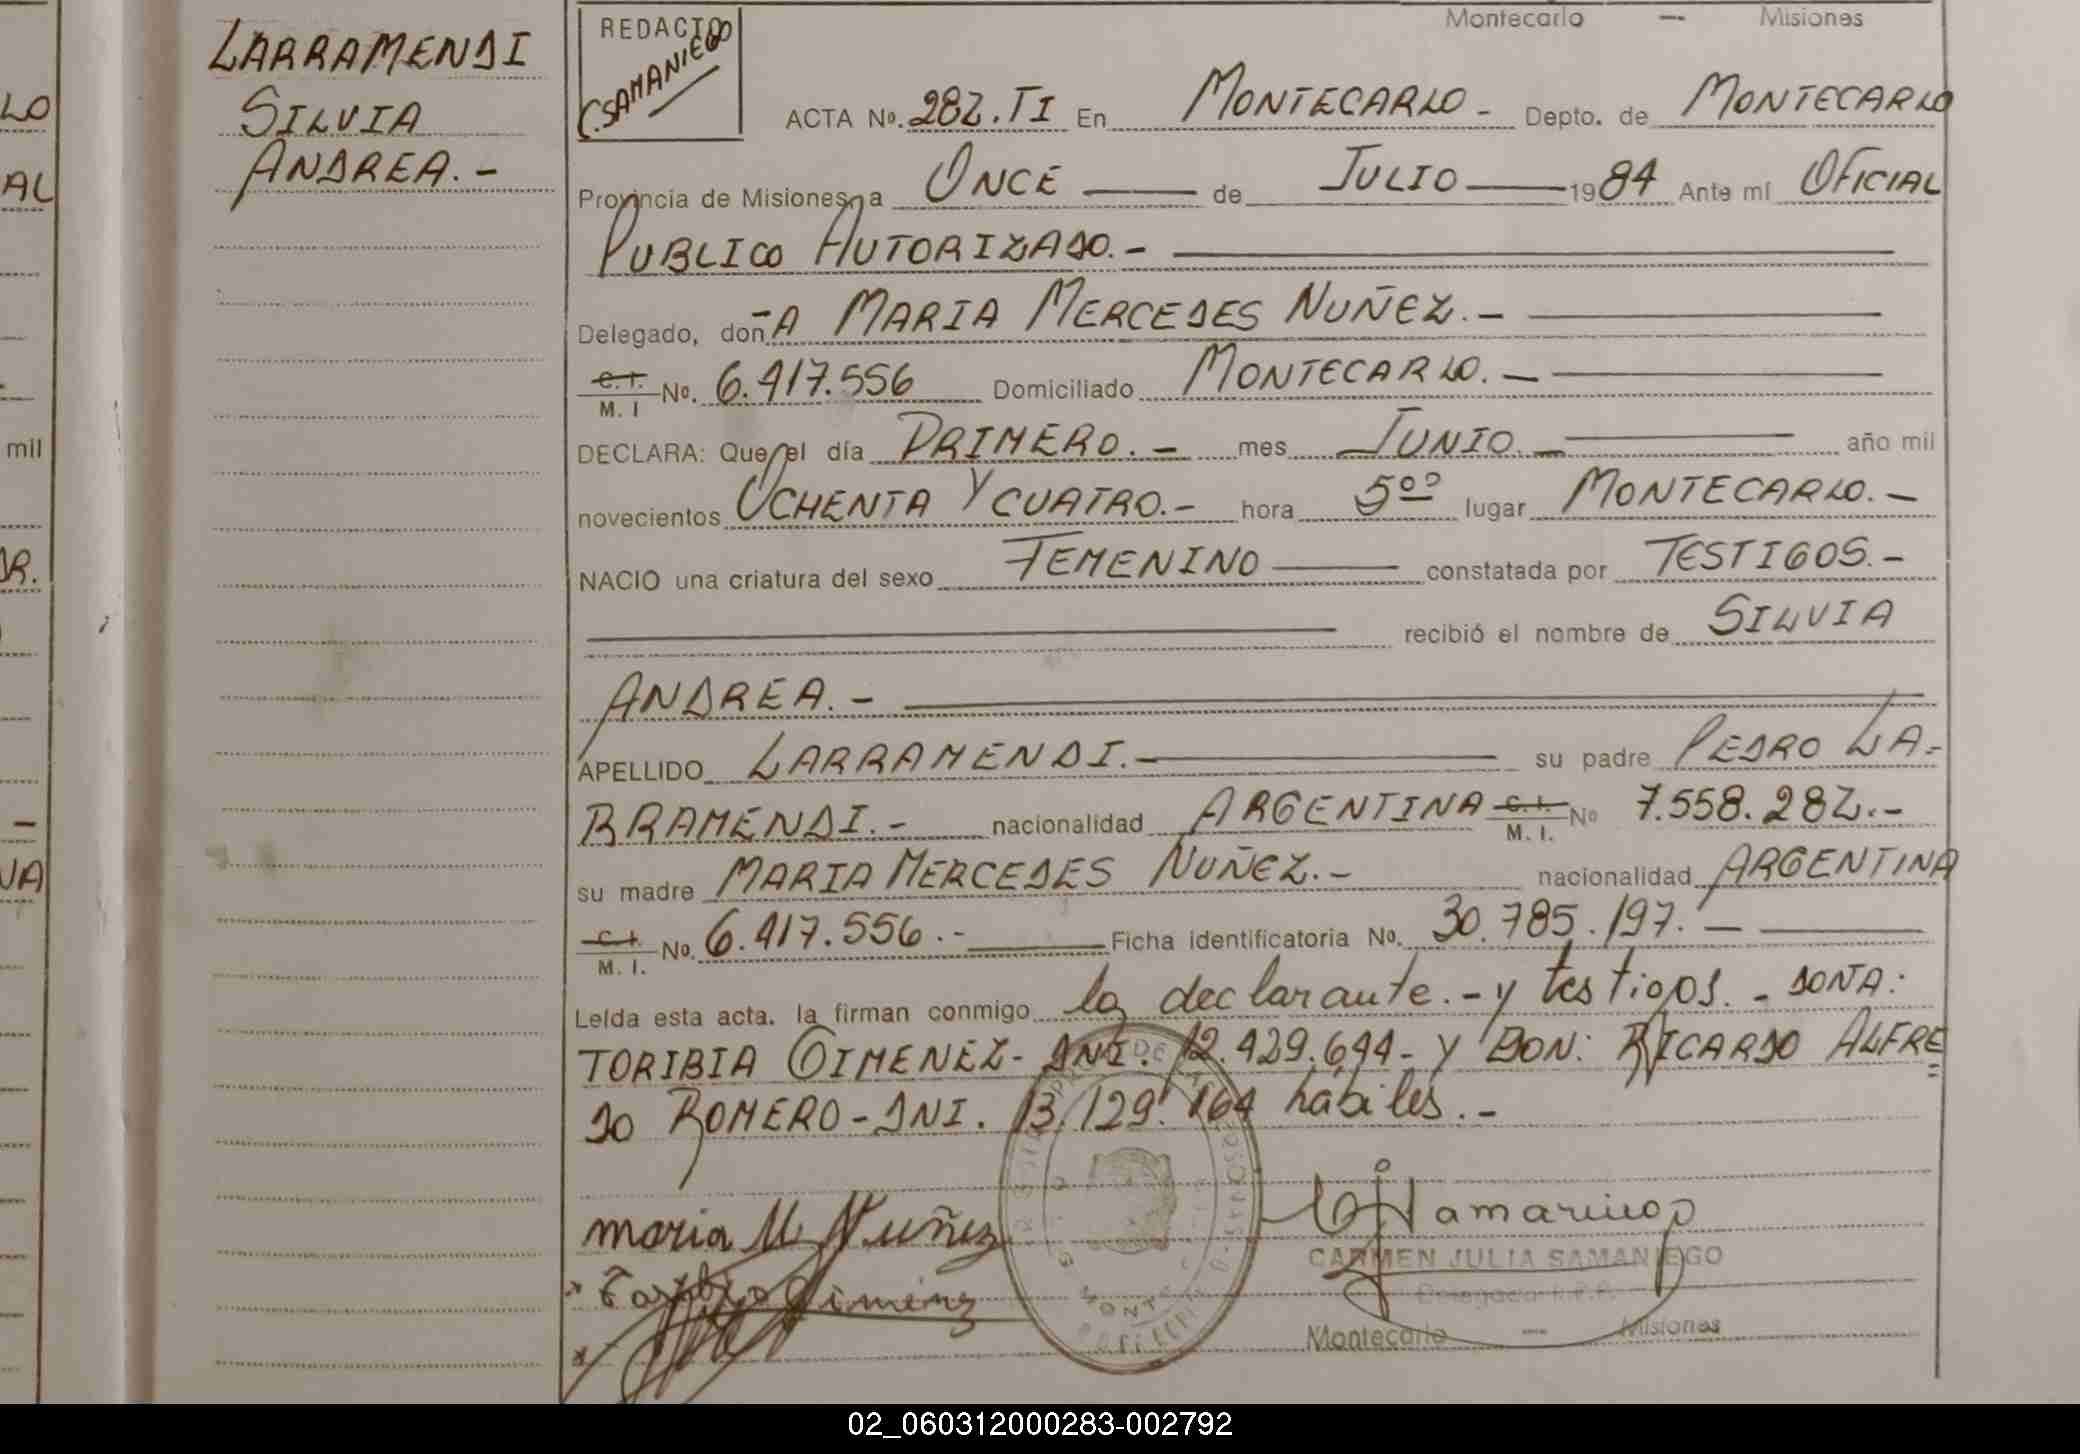 Montecarlo — Misiones
LARRAMENDI
SILVIA
ANDREA.-
REDACTO
C. SAMANIEGO
LO
AL
mil
DR.
NA
ACTA No. 282.TI En MONTECARLO - Depto. de MONTECARLO
Provincia de Misiones, a ONCE — de JULIO — 1984 Ante mí OFICIAL
PUBLICO AUTORIZADO.-
Delegado, doñA MARIA MERCEDES NUÑEZ.-
C.I. M.I No. 6.417.556 Domiciliado MONTECARLO.-
DECLARA: Que el día PRIMERO.- mes JUNIO.- año mil
novecientos OCHENTA Y CUATRO.- hora 5oo lugar MONTECARLO.-
NACIO una criatura del sexo FEMENINO — constatada por TESTIGOS.-
recibió el nombre de SILVIA
ANDREA.-
APELLIDO LARRAMENDI.- su padre PEDRO LA=
RRAMENDI.- nacionalidad ARGENTINA C.I. M.I. No 7.558.282.-
su madre MARIA MERCEDES NUÑEZ.- nacionalidad ARGENTINA
C.I. M.I. No. 6.417.556.- Ficha identificatoria No. 30.785.197.-
Leída esta acta, la firman conmigo la declarante.- y testigos.- DONA:
TORIBIA GIMENEZ- DNI. 12.429.644- Y DON: RICARDO ALFRE=
DO ROMERO-DNI. 13.129.164 hábiles.-
maria M Nuñez
Toribia Gimenez
CARMEN JULIA SAMANIEGO
Delegada R.P.P.
Montecarlo — Misiones
02_060312000283-002792